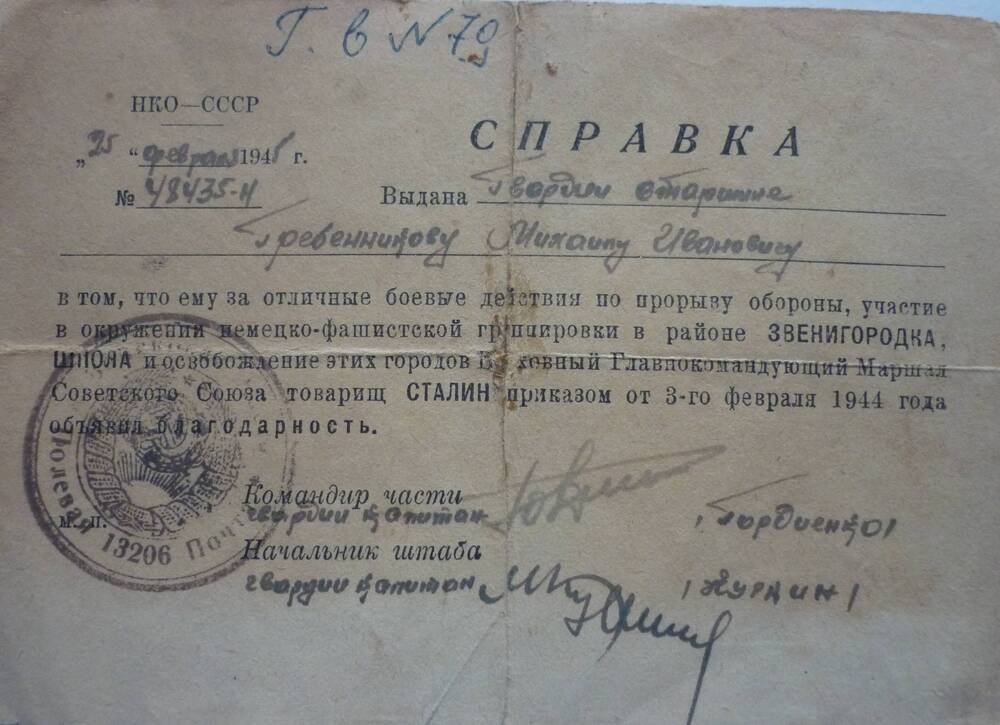 Г. в N 79
НКО—СССР
„25 “ февраля 1945 г.
№ 48435-Н
СПРАВКА
Выдана Гвардии старшине
Гребенникову Михаилу Ивановичу
в том, что ему за отличные боевые действия по прорыву обороны, участие
в окружении немецко-фашистской группировки в районе ЗВЕНИГОРОДКА,
ШПОЛА и освобождение этих городов Верховный Главнокомандующий Маршал
Советского Союза товарищ СТАЛИН приказом от 3-го февраля 1944 года
объявил благодарность.
Командир части
гвардии капитан
/Гордиенко/
м. п.
Начальник штаба
гвардии капитан
Полевая Почта
13206